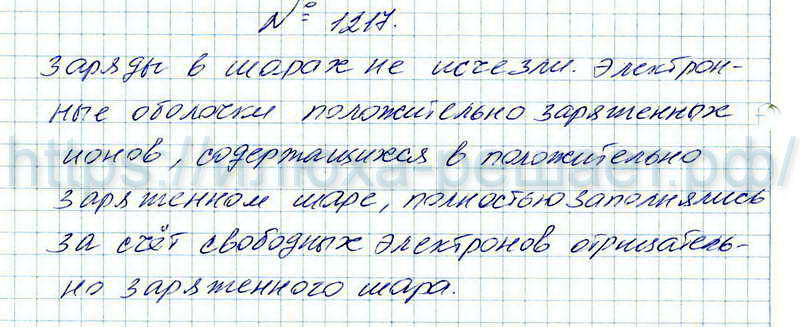 № 1217.
Заряды в шарах не исчезли. Электрон-
ные оболочки положительно заряженных
ионов, содержащихся в положительно
заряженном шаре, полностью заполнялись
за счёт свободных электронов отрицатель-
но заряженного шара.